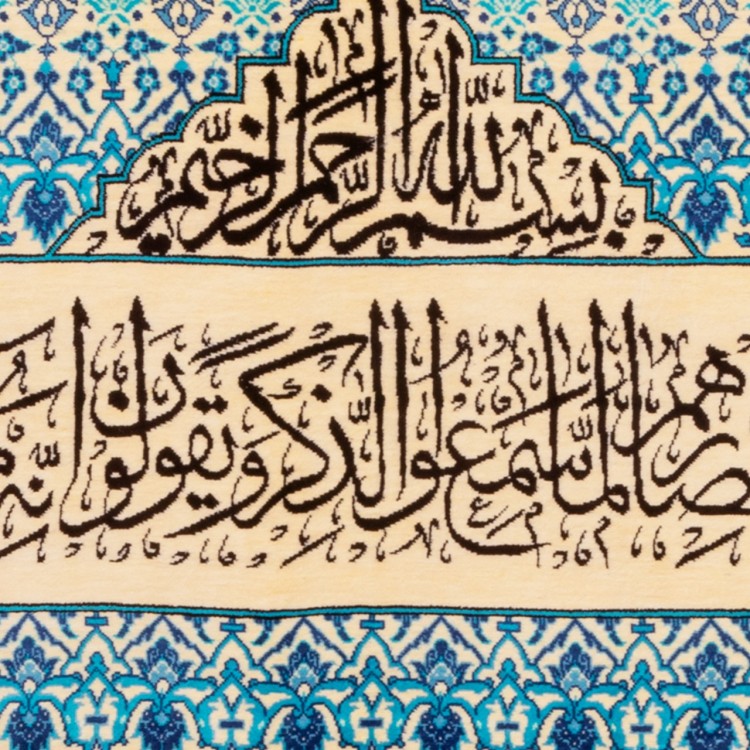 بسم الله الرحمن الرحيم
بصارهم لما سمعوا الذكر ويقولون إنه